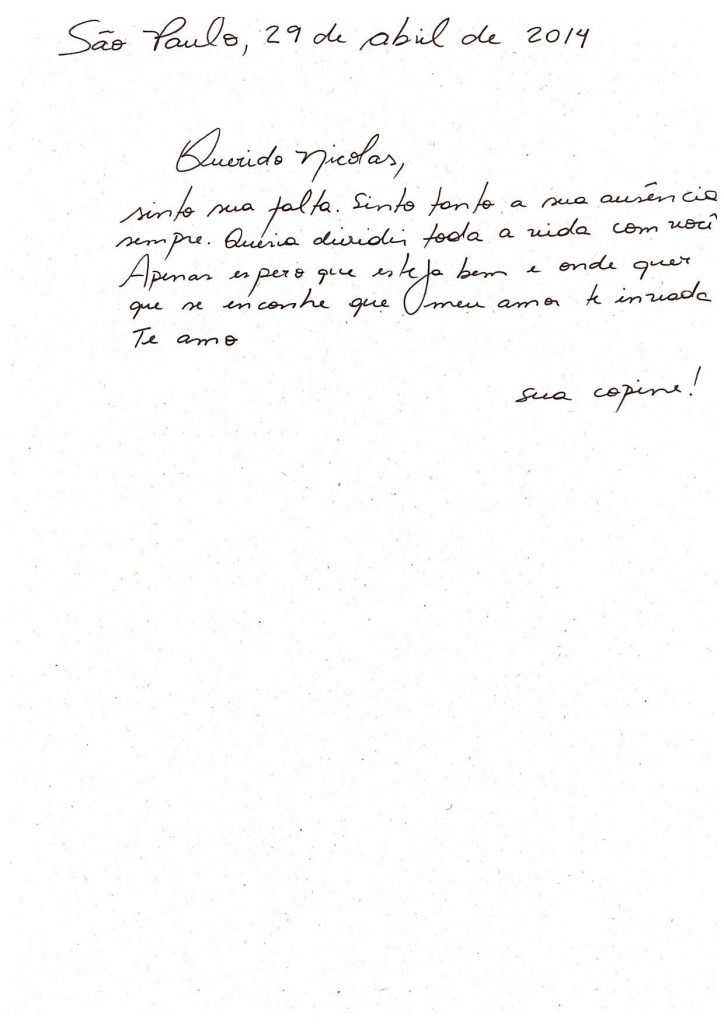 São Paulo, 29 de abril de 2014
Querido Nicolas,
sinto sua falta. Sinto tanto a sua ausência
sempre. Queria dividir toda a vida com você
Apenas espero que esteja bem e onde quer
que se encontre que o meu amor te invada
Te amo
sua copine!